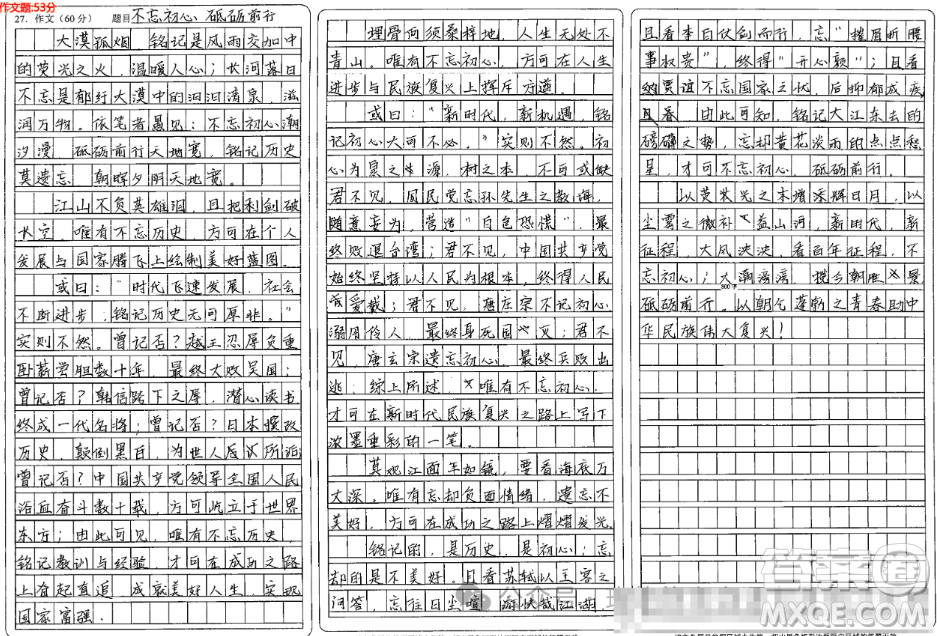 作文题:53分
27. 作文(60分) 题目 不忘初心 砥砺前行
大漠孤烟,铭记是风雨交加中
的荧光之火,温暖人心;长河落日
不忘是郁纡大漠中的汩汩清泉,滋
润万物。依笔者愚见:不忘初心潮
汐漫,砥砺前行天地宽,铭记历史
莫遗忘,朝晖夕阴天地宽。
江山不负英雄泪,且把利剑破
长空。唯有不忘历史,方可在个人
发展与国家腾飞上绘制美好蓝图。
或曰:"时代飞速发展,社会
不断进步,铭记历史无可厚非。"
实则不然。曾记否?越王忍辱负重
卧薪尝胆数十年,最终大败吴国;
曾记否?韩信胯下之辱,潜心读书
终成一代名将;曾记否?日本篡改
历史,颠倒黑白,为世人反议所诟
曾记否?中国共产党领导全国人民
浴血奋斗数十载,方可屹立于世界
东方;由此可见,唯有不忘历史,
铭记教训与经验,才可在成功之路
上奋起直追,成就美好人生,实现
国家富强.
埋骨何须桑梓地,人生无处不
青山。唯有不忘初心,方可在人生
进步与民族复兴上挥斥方遒。
或曰:"新时代,新机遇,铭
记初心大可不必。"实则不然。初
心为泉之源,树之本,不可或缺
君不见,国民党忘孙先生之教诲,
随意妄为,营造"白色恐慌",最
终败退台湾;君不见,中国共产党
始终坚持以人民为根本,终得人民
爱戴;君不见,唐庄宗不记初心
溺用伶人,最终身死国灭;君不
见,唐玄宗遗忘初心,最终兵败出
逃;综上所述,唯有不忘初心,
才可在新时代民族复兴之路上写下
浓墨重彩的一笔。
莫观江面平如镜,要看海底万
丈深。唯有忘却负面情绪,遗忘不
美好,方可在成功之路上熠熠发光
铭记的,是历史,是初心;忘
却的是不美好。且看苏轼以主客之
问答,忘往日尘喧,游快哉江湖,
且看李白仗剑而行,忘"摧眉折腰
事权贵",终得"开心颜";且看
贾谊不忘国家之状,后抑郁成疾
且看,由此可知,铭记大江东去的
磅礴之势,忘却黄花淡雨的点点程
星,才可不忘初心,砥砺前行。
以荧荧光之末增添辉日月,以
尘雾之微补益山河,新时代,新
征程,大风泱泱,看百年征程,不
忘初心;大潮滂滂,揽今朝胜景
砥砺前行。以朝气蓬勃之青春助中
华民族伟大复兴!
800字
答案圈
公众号